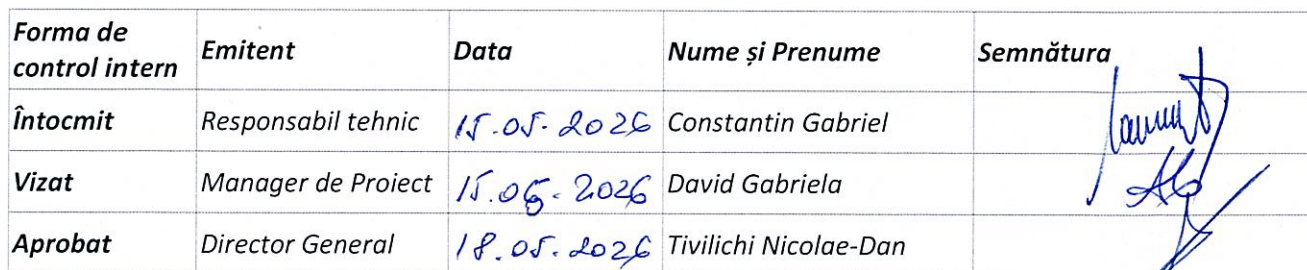 Forma de control intern Emitent Data Nume și Prenume Semnătura
Întocmit Responsabil tehnic 15.05.2026 Constantin Gabriel
Vizat Manager de Proiect 15.05.2026 David Gabriela
Aprobat Director General 18.05.2026 Tivilichi Nicolae-Dan